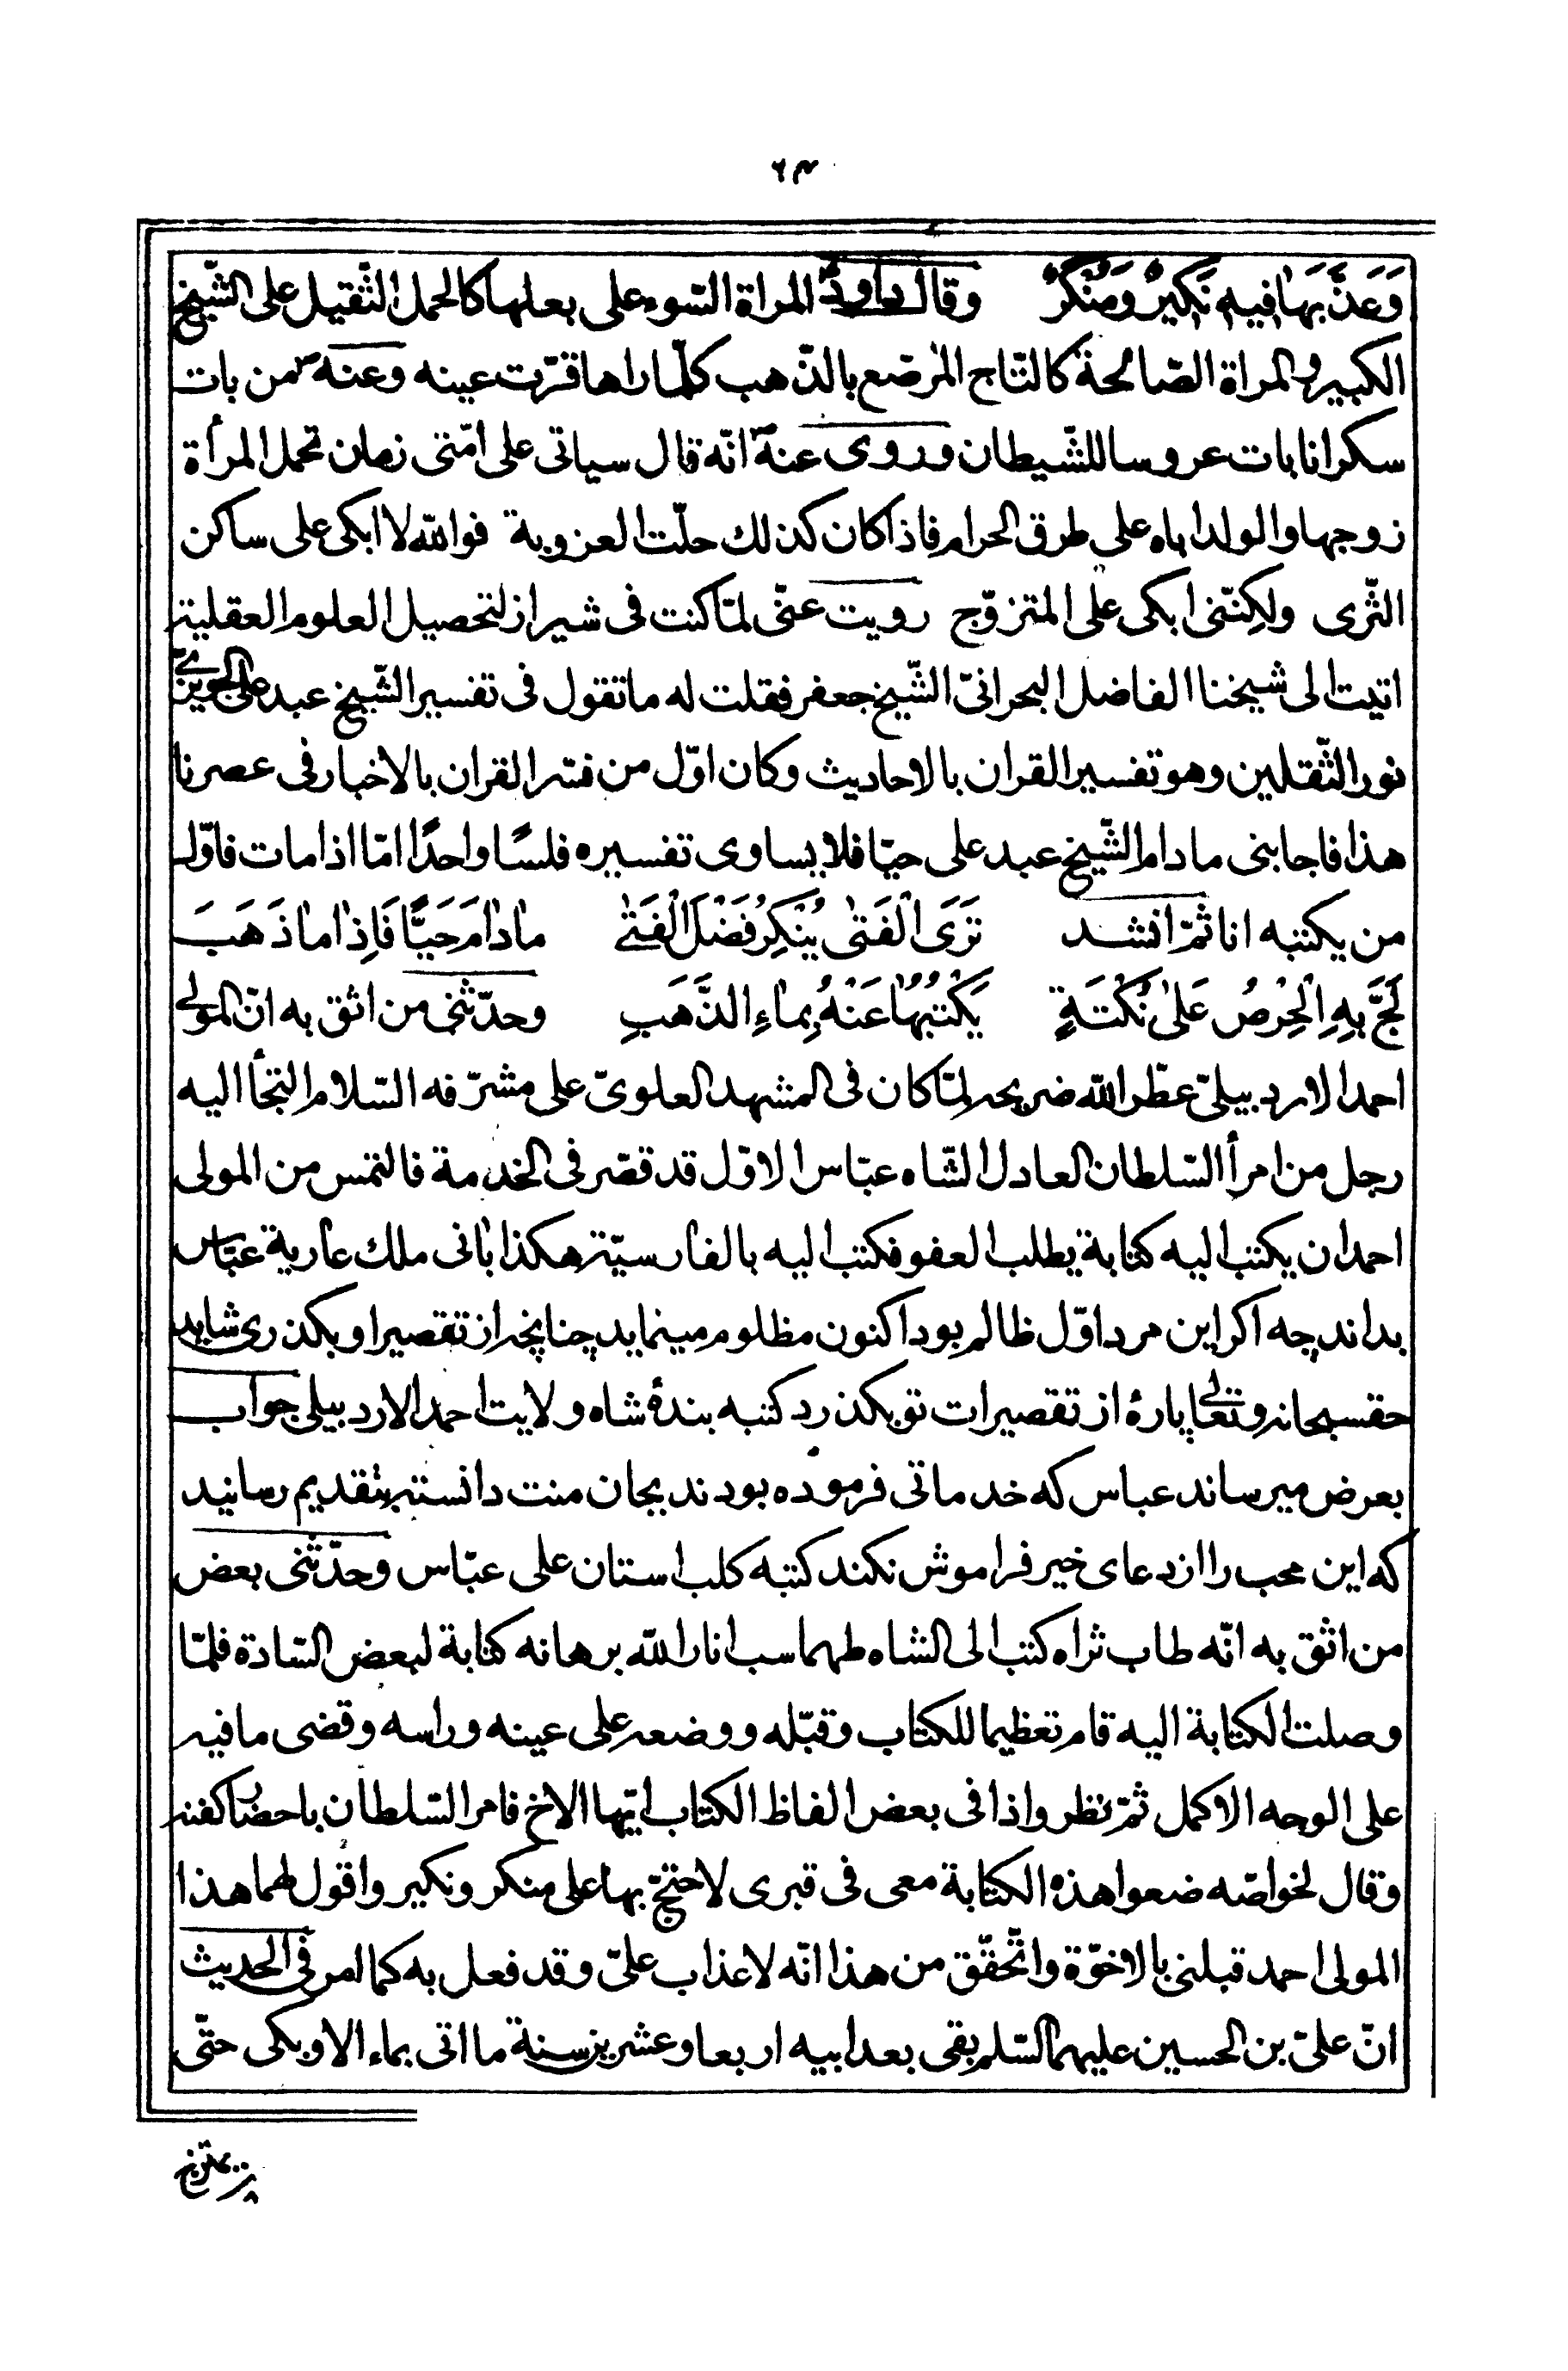 ٦٣
وَعَذَّبَهَا فيهِ نَكيرٌ وَمُنْكَرٌ وقال داود المراة السّوء على بعلها كالحمل الثّقيل على الشّيخ
الكبير والمراة الصّالحة كالتّاج المرصّع بالذّهب كلّما راها قرّت عينه وعنه ص من بات
سكرانا بات عروسا للشّيطان وروى عنه ص انّه قال سياتى على امّتى زمان تحمل المرأة
زوجها والولد اباه على طرق الحرام فاذا كان كذلك حلّت العزوبة فوالله لا ابكى على ساكن
الثّرى ولكنّنى ابكى على المتزوّج رويت عنّى لمّا كنت فى شيراز لتحصيل العلوم العقلية
اتيت الى شيخنا الفاضل البحرانىّ الشّيخ جعفر فقلت له ما تقول فى تفسير الشّيخ عبد على الحويزىّ
نور الثّقلين وهو تفسير القران بالاحاديث وكان اوّل من فسّر القران بالاخبار فى عصرنا
هذا فاجابنى مادام الشّيخ عبد على حيّا فلا يساوى تفسيره فلسًا واحدًا امّا اذا مات فاوّل
من يكتبه انا ثمّ انشد تَرَى الْفَتىٰ يُنْكِرُ فَضْلَ الْفَتىٰ مادٰامَ حَيًّا فَاِذٰا مٰا ذَهَبَ
لَجَّ بِهِ الْحِرْصُ عَلىٰ نُكْتَةٍ يَكْتُبُهٰا عَنْهُ بِمٰاءِ الذَّهَبِ وحدّثنى من اثق به انّ المولى
احمد الاردبيلىّ عطّر الله ضريحه لمّا كان فى المشهد العلوىّ على مشرّفه السّلام التجأ اليه
رجل من امرأ السّلطان العادل الشّاه عبّاس الاوّل قد قصّر فى الخدمة فالتمس من المولى
احمد ان يكتب اليه كتابة يطلب العفو فكتب اليه بالفارسيّة هكذا بانى ملك عارية عبّاس
بداند چه اكر اين مرد اوّل ظالم بود اكنون مظلوم مينمايد چنانچه از تقصير او بكذرى شايد
حقسبحانه وتعالى پارهٔ از تقصيرات تو بكذرد كتبه بندهٔ شاه ولايت احمد الاردبيلى جواب
بعرض ميرساند عباس كه خدماتى فرموده بودند بجان منت دانسته بتقديم رسانيد
كه اين محب را از دعاى خير فراموش نكند كتبه كلب استان على عبّاس وحدّثنى بعض
من اثق به انّه طاب ثراه كتب الى الشاه طهماسب انار الله برهانه كتابة لبعض السّادة فلمّا
وصلت الكتابة اليه قام تعظيما للكتاب وقبّله ووضعه على عينه وراسه وقضى ما فيه
على الوجه الاكمل ثمّ نظر واذا فى بعض الفاظ الكتاب ايّها الاخ فامر السّلطان باحضار كفنه
وقال لخواصّه ضعوا هذه الكتابة معى فى قبرى لاحتجّ بها على منكر ونكير واقول لهما هذا
المولى احمد قبلنى بالاخوّة واتحقّق من هذا انّه لا عذاب علىّ وقد فعل به كما امر فى الحديث
انّ علىّ بن الحسين عليهما السّلم بقى بعد ابيه اربعا وعشرين سنة ما اتى بماء الا وبكى حتّى